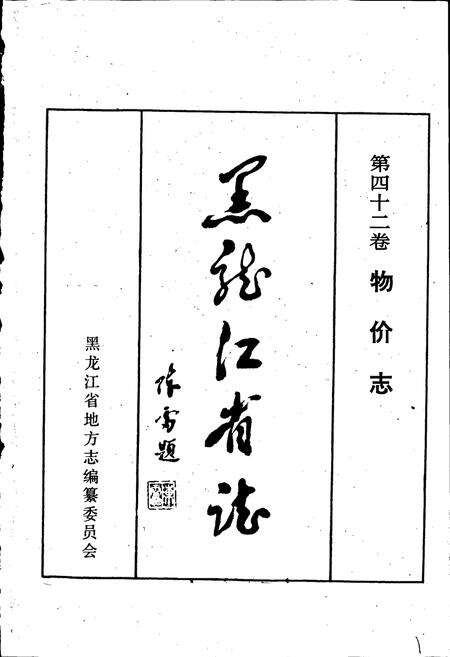 第四十二卷 物价志
黑龙江省志
陈雷题
黑龙江省地方志编纂委员会